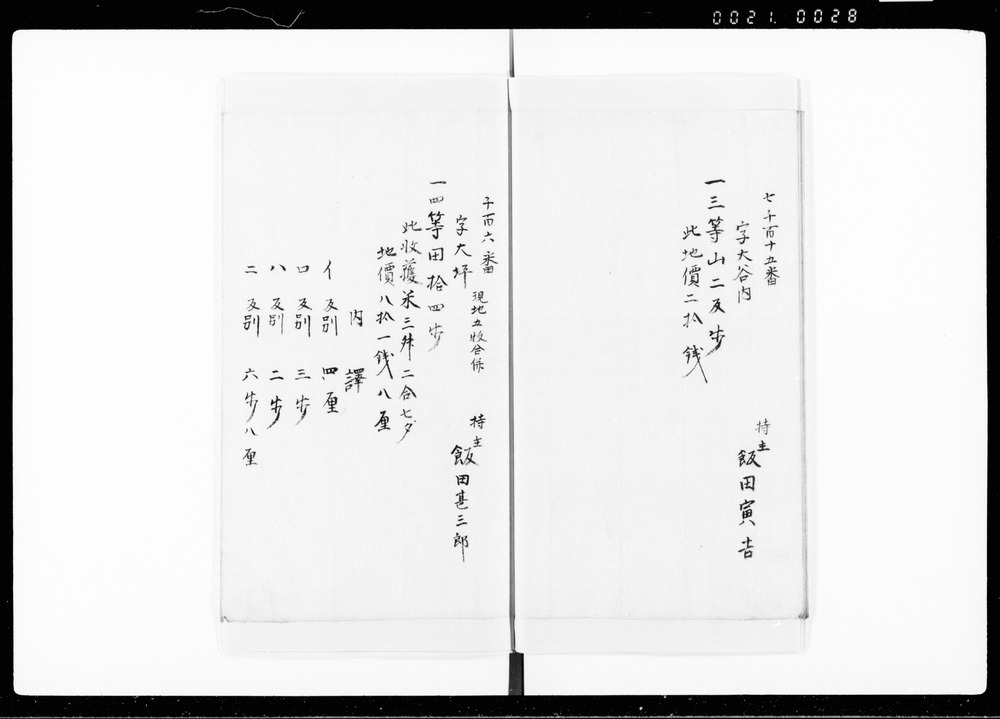 0021. 0028
七千百十五番
字大谷内
持主 飯田寅吉
一三等山二反歩
此地價二拾銭
千百六番
字大坪 現地五枚合併
持主 飯田甚三郎
一四等田拾四歩
此收穫米三舛二合七夕
地價八拾一銭八厘
内譯
イ 反別 四厘
ロ 反別 三歩
ハ 反別 二歩
ニ 反別 六歩八厘